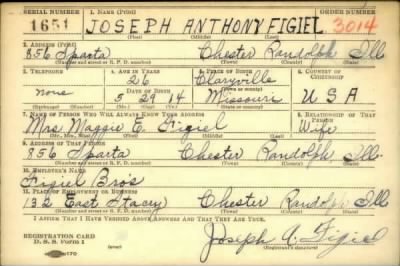 SERIAL NUMBER 1. NAME (Print) ORDER NUMBER
1651 JOSEPH ANTHONY FIGIEL 3014
(First) (Middle) (Last)
2. ADDRESS (Print)
856 Sparta Chester Randolph Ill
(Number and street or R. F. D. number) (Town) (County) (State)
3. TELEPHONE 4. AGE IN YEARS 5. PLACE OF BIRTH 6. COUNTRY OF CITIZENSHIP
26 Claryville
none DATE OF BIRTH (Town or county)
5 29 14 Missouri U S A
(Exchange) (No.) (Mo.) (Day) (Yr.) (State or country)
7. NAME OF PERSON WHO WILL ALWAYS KNOW YOUR ADDRESS 8. RELATIONSHIP OF THAT PERSON
Mrs. Maggie E. Figiel Wife
(Mr., Mrs., Miss) (First) (Middle) (Last)
9. ADDRESS OF THAT PERSON
856 Sparta Chester Randolph Ill.
(Number and street or R. F. D. number) (Town) (County) (State)
10. EMPLOYER'S NAME
Figiel Bros
11. PLACE OF EMPLOYMENT OR BUSINESS
132 East Stacey Chester Randolph Ill
(Number and street or R. F. D. number) (Town) (County) (State)
I AFFIRM THAT I HAVE VERIFIED ABOVE ANSWERS AND THAT THEY ARE TRUE.
REGISTRATION CARD
D. S. S. Form 1 Joseph A. Figiel